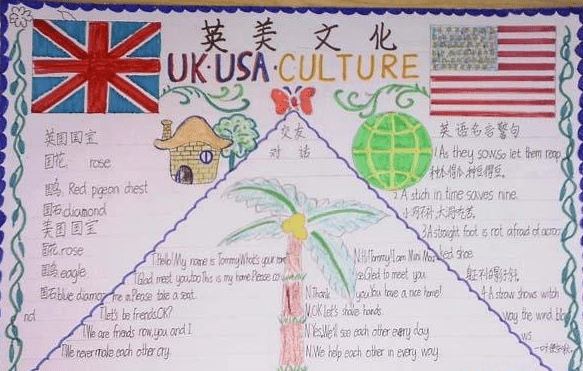 英美文化
UK·USA·CULTURE
英国国宝
国花 rose
国鸟 Red pigeon chest
国石 diamond
美国国宝
国花 rose
国鸟 eagle
国石 blue
交友
对话
T.hello! My name is Tommy What's your
T.Glad meet you.too This is my home.Please
me in.Please take a seat.
T.let's be friends,OK?
T.We are friends now,you and I
T.We never make each other cry.
N.Hi!Tommy!I am Mini
Glad to meet you
N.Thank you.You have a nice home!
N.OK Let's shake hands.
N.Yes,We'll see each other every day.
N.We help each other in every way.
英语名言警句
1 As they sow.so let them reap
2 A stich in time saves nine.
3 A straight foot is not afraid of
ked shoe
4 A straw shows witch
way the wind